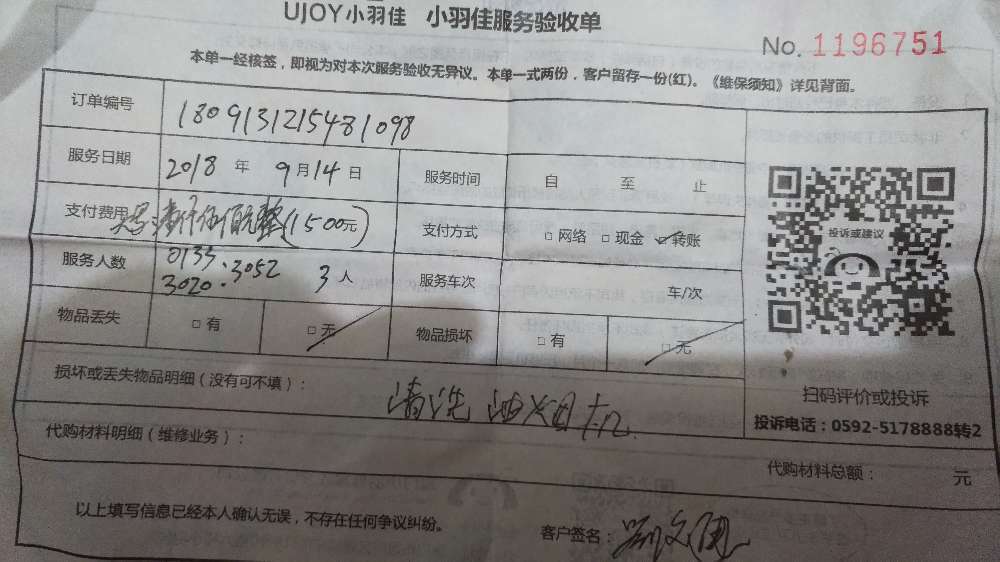 UJOY小羽佳 小羽佳服务验收单
No. 1196751
本单一经核签，即视为对本次服务验收无异议。本单一式两份，客户留存一份(红)。《维保须知》详见背面。
订单编号 180913121548​1098
服务日期 2018 年 9 月 14 日 服务时间 自 至 止
支付费用 壹仟伍佰元整(1500元) 支付方式 □ 网络 □ 现金 ☑ 转账
服务人数 0133.3052
3020. 3 人 服务车次 车/次
物品丢失 □ 有 □ 无 物品损坏 □ 有 □ 无
损坏或丢失物品明细（没有可不填）：
清洗油烟机
代购材料明细（维修业务）：
代购材料总额： 元
以上填写信息已经本人确认无误，不存在任何争议纠纷。 客户签名：
投诉或建议
扫码评价或投诉
投诉电话：0592-5178888转2